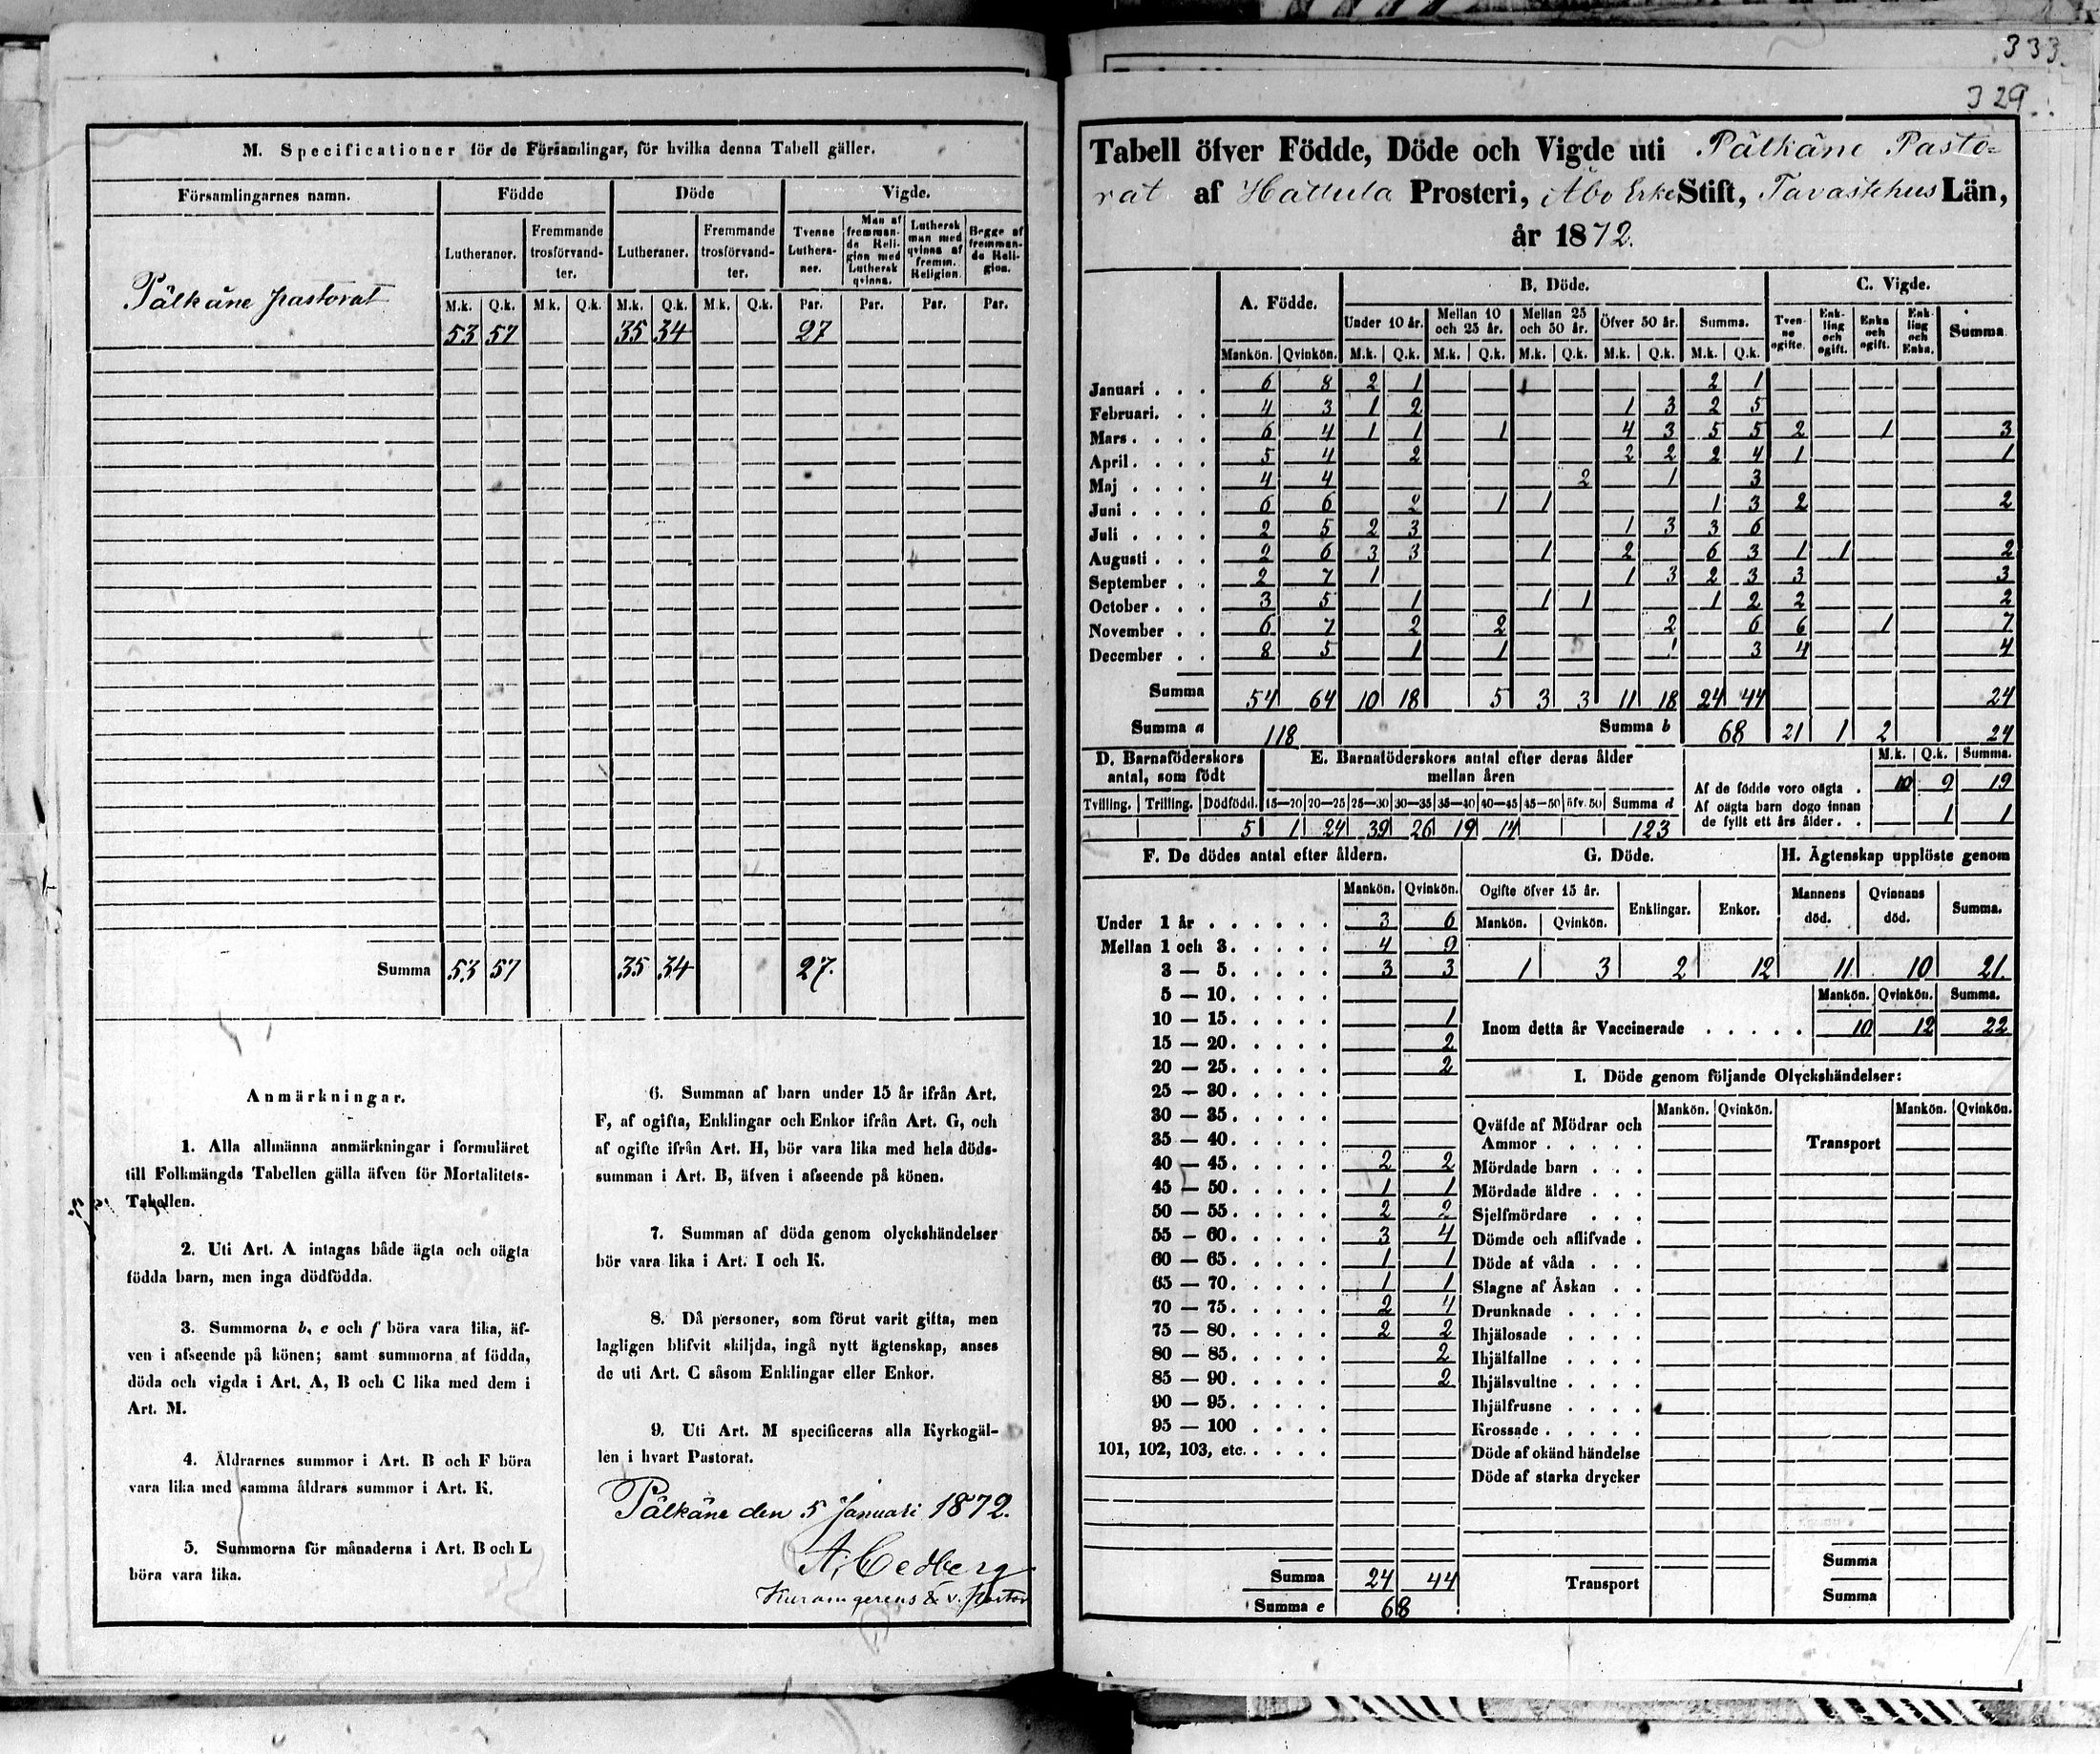 333.
329.
M. Specificationer för de Församlingar, för hvilka denna Tabell gäller.
Församlingarnes namn. | Födde | Döde | Vigde.
Lutheraner. | Fremmande trosförvandter. | Lutheraner. | Fremmande trosförvandter. | Tvenne Lutheraner. | Man af fremmande Religion med Luthersk qvinna. | Luthersk man med qvinna af fremm. Religion. | Begge af fremmande Religion.
M.k. | Q.k. | M.k. | Q.k. | M.k. | Q.k. | M.k. | Q.k. | Par. | Par. | Par. | Par.
Pälkäne pastorat | 53 | 57 | 35 | 34 | 27
Summa | 53 | 57 | 35 | 34 | 27.
Anmärkningar.
1. Alla allmänna anmärkningar i formuläret
till Folkmängds Tabellen gälla äfven för Mortalitets-
Tabellen.
2. Uti Art. A intagas både ägta och oägta
födda barn, men inga dödfödda.
3. Summorna b, e och f böra vara lika, äf-
ven i afseende på könen; samt summorna af födda,
döda och vigda i Art. A, B och C lika med dem i
Art. M.
4. Äldrarnes summor i Art. B och F böra
vara lika med samma åldrars summor i Art. K.
5. Summorna för månaderna i Art. B och L
böra vara lika.
6. Summan af barn under 15 år ifrån Art.
F, af ogifta, Enklingar och Enkor ifrån Art. G, och
af ogifte ifrån Art. H, bör vara lika med hela döds-
summan i Art. B, äfven i afseende på könen.
7. Summan af döda genom olyckshändelser
bör vara lika i Art. I och K.
8. Då personer, som förut varit gifta, men
lagligen blifvit skiljda, ingå nytt ägtenskap, anses
de uti Art. C såsom Enklingar eller Enkor.
9. Uti Art. M specificeras alla Kyrkogäl-
len i hvart Pastorat.
Pälkäne den 5 Januari 1872.
A. Cedberg
& v. pastor
Tabell öfver Födde, Döde och Vigde uti Pälkäne Pasto=
rat af Hattula Prosteri, Åbo Erke Stift, Tavastehus Län,
år 1872.
A. Födde. | B. Döde. | C. Vigde.
Under 10 år. | Mellan 10 och 25 år. | Mellan 25 och 50 år. | Öfver 50 år. | Summa. | Tvenne ogifte. | Enkling och ogift. | Enka och ogift. | Enkling och Enka. | Summa
Mankön. | Qvinkön. | M.k. | Q.k. | M.k. | Q.k. | M.k. | Q.k. | M.k. | Q.k. | M.k. | Q.k.
Januari . . . 6 | 8 | 2 | 1 | 2 | 1
Februari. . . 4 | 3 | 1 | 2 | 1 | 3 | 2 | 5
Mars . . . . 6 | 4 | 1 | 1 | 1 | 4 | 3 | 5 | 5 | 2 | 1 | 3
April . . . . 5 | 4 | 2 | 2 | 2 | 2 | 4 | 1 | 1
Maj . . . . 4 | 4 | 2 | 1 | 3
Juni . . . . 6 | 6 | 2 | 1 | 1 | 1 | 3 | 2 | 2
Juli . . . . 2 | 5 | 2 | 3 | 1 | 3 | 3 | 6
Augusti . . . 2 | 6 | 3 | 3 | 1 | 2 | 6 | 3 | 1 | 1 | 2
September . . 2 | 7 | 1 | 1 | 3 | 2 | 3 | 3 | 3
October . . . 3 | 5 | 1 | 1 | 1 | 1 | 2 | 2 | 2
November . . 6 | 7 | 2 | 2 | 2 | 6 | 6 | 1 | 7
December . . 8 | 5 | 1 | 1 | 1 | 3 | 4 | 4
Summa 54 | 64 | 10 | 18 | 5 | 3 | 3 | 11 | 18 | 24 | 44 | 24
Summa a 118 | Summa b 68 | 21 | 1 | 2 | 24
D. Barnaföderskors antal, som födt | E. Barnaföderskors antal efter deras ålder mellan åren
Tvilling. | Trilling. | Dödfödd. | 15—20 | 20—25 | 25—30 | 30—35 | 35—40 | 40—45 | 45—50 | öfv. 50 | Summa d
5 | 1 | 24 | 39 | 26 | 19 | 14 | 123
M.k. | Q.k. | Summa.
Af de födde voro oägta . 10 | 9 | 19
Af oägta barn dogo innan
de fyllt ett års ålder. . 1 | 1
F. De dödes antal efter åldern.
Mankön. | Qvinkön.
Under 1 år . . . . . . 3 | 6
Mellan 1 och 3. . . . . 4 | 9
3 — 5. . . . . 3 | 3
5 — 10. . . . .
10 — 15. . . . . 1
15 — 20. . . . . 2
20 — 25. . . . . 2
25 — 30. . . . .
30 — 35. . . . .
35 — 40. . . . .
40 — 45. . . . . 2 | 2
45 — 50. . . . . 1 | 1
50 — 55. . . . . 2 | 2
55 — 60. . . . . 3 | 4
60 — 65. . . . . 1 | 1
65 — 70. . . . . 1 | 1
70 — 75. . . . . 2 | 4
75 — 80. . . . . 2 | 2
80 — 85. . . . . 2
85 — 90. . . . . 2
90 — 95. . . . .
95 — 100 . . . .
101, 102, 103, etc. . . . .
Summa 24 | 44
Summa e 68
G. Döde.
Ogifte öfver 15 år. | Enklingar. | Enkor.
Mankön. | Qvinkön.
1 | 3 | 2 | 12
H. Ägtenskap upplöste genom
Mannens död. | Qvinnans död. | Summa.
11 | 10 | 21.
Mankön. | Qvinkön. | Summa.
Inom detta år Vaccinerade . . . . . 10 | 12 | 22
I. Döde genom följande Olyckshändelser:
Mankön. | Qvinkön. | Mankön. | Qvinkön.
Qväfde af Mödrar och
Ammor . . . . . | Transport
Mördade barn . . .
Mördade äldre . . .
Sjelfmördare . . .
Dömde och aflifvade .
Döde af våda . . .
Slagne af Åskan . .
Drunknade . . . .
Ihjälosade . . . .
Ihjälfallne . . . .
Ihjälsvultne . . . .
Ihjälfrusne . . . .
Krossade . . . . .
Döde af okänd händelse
Döde af starka drycker
Transport
Summa
Summa